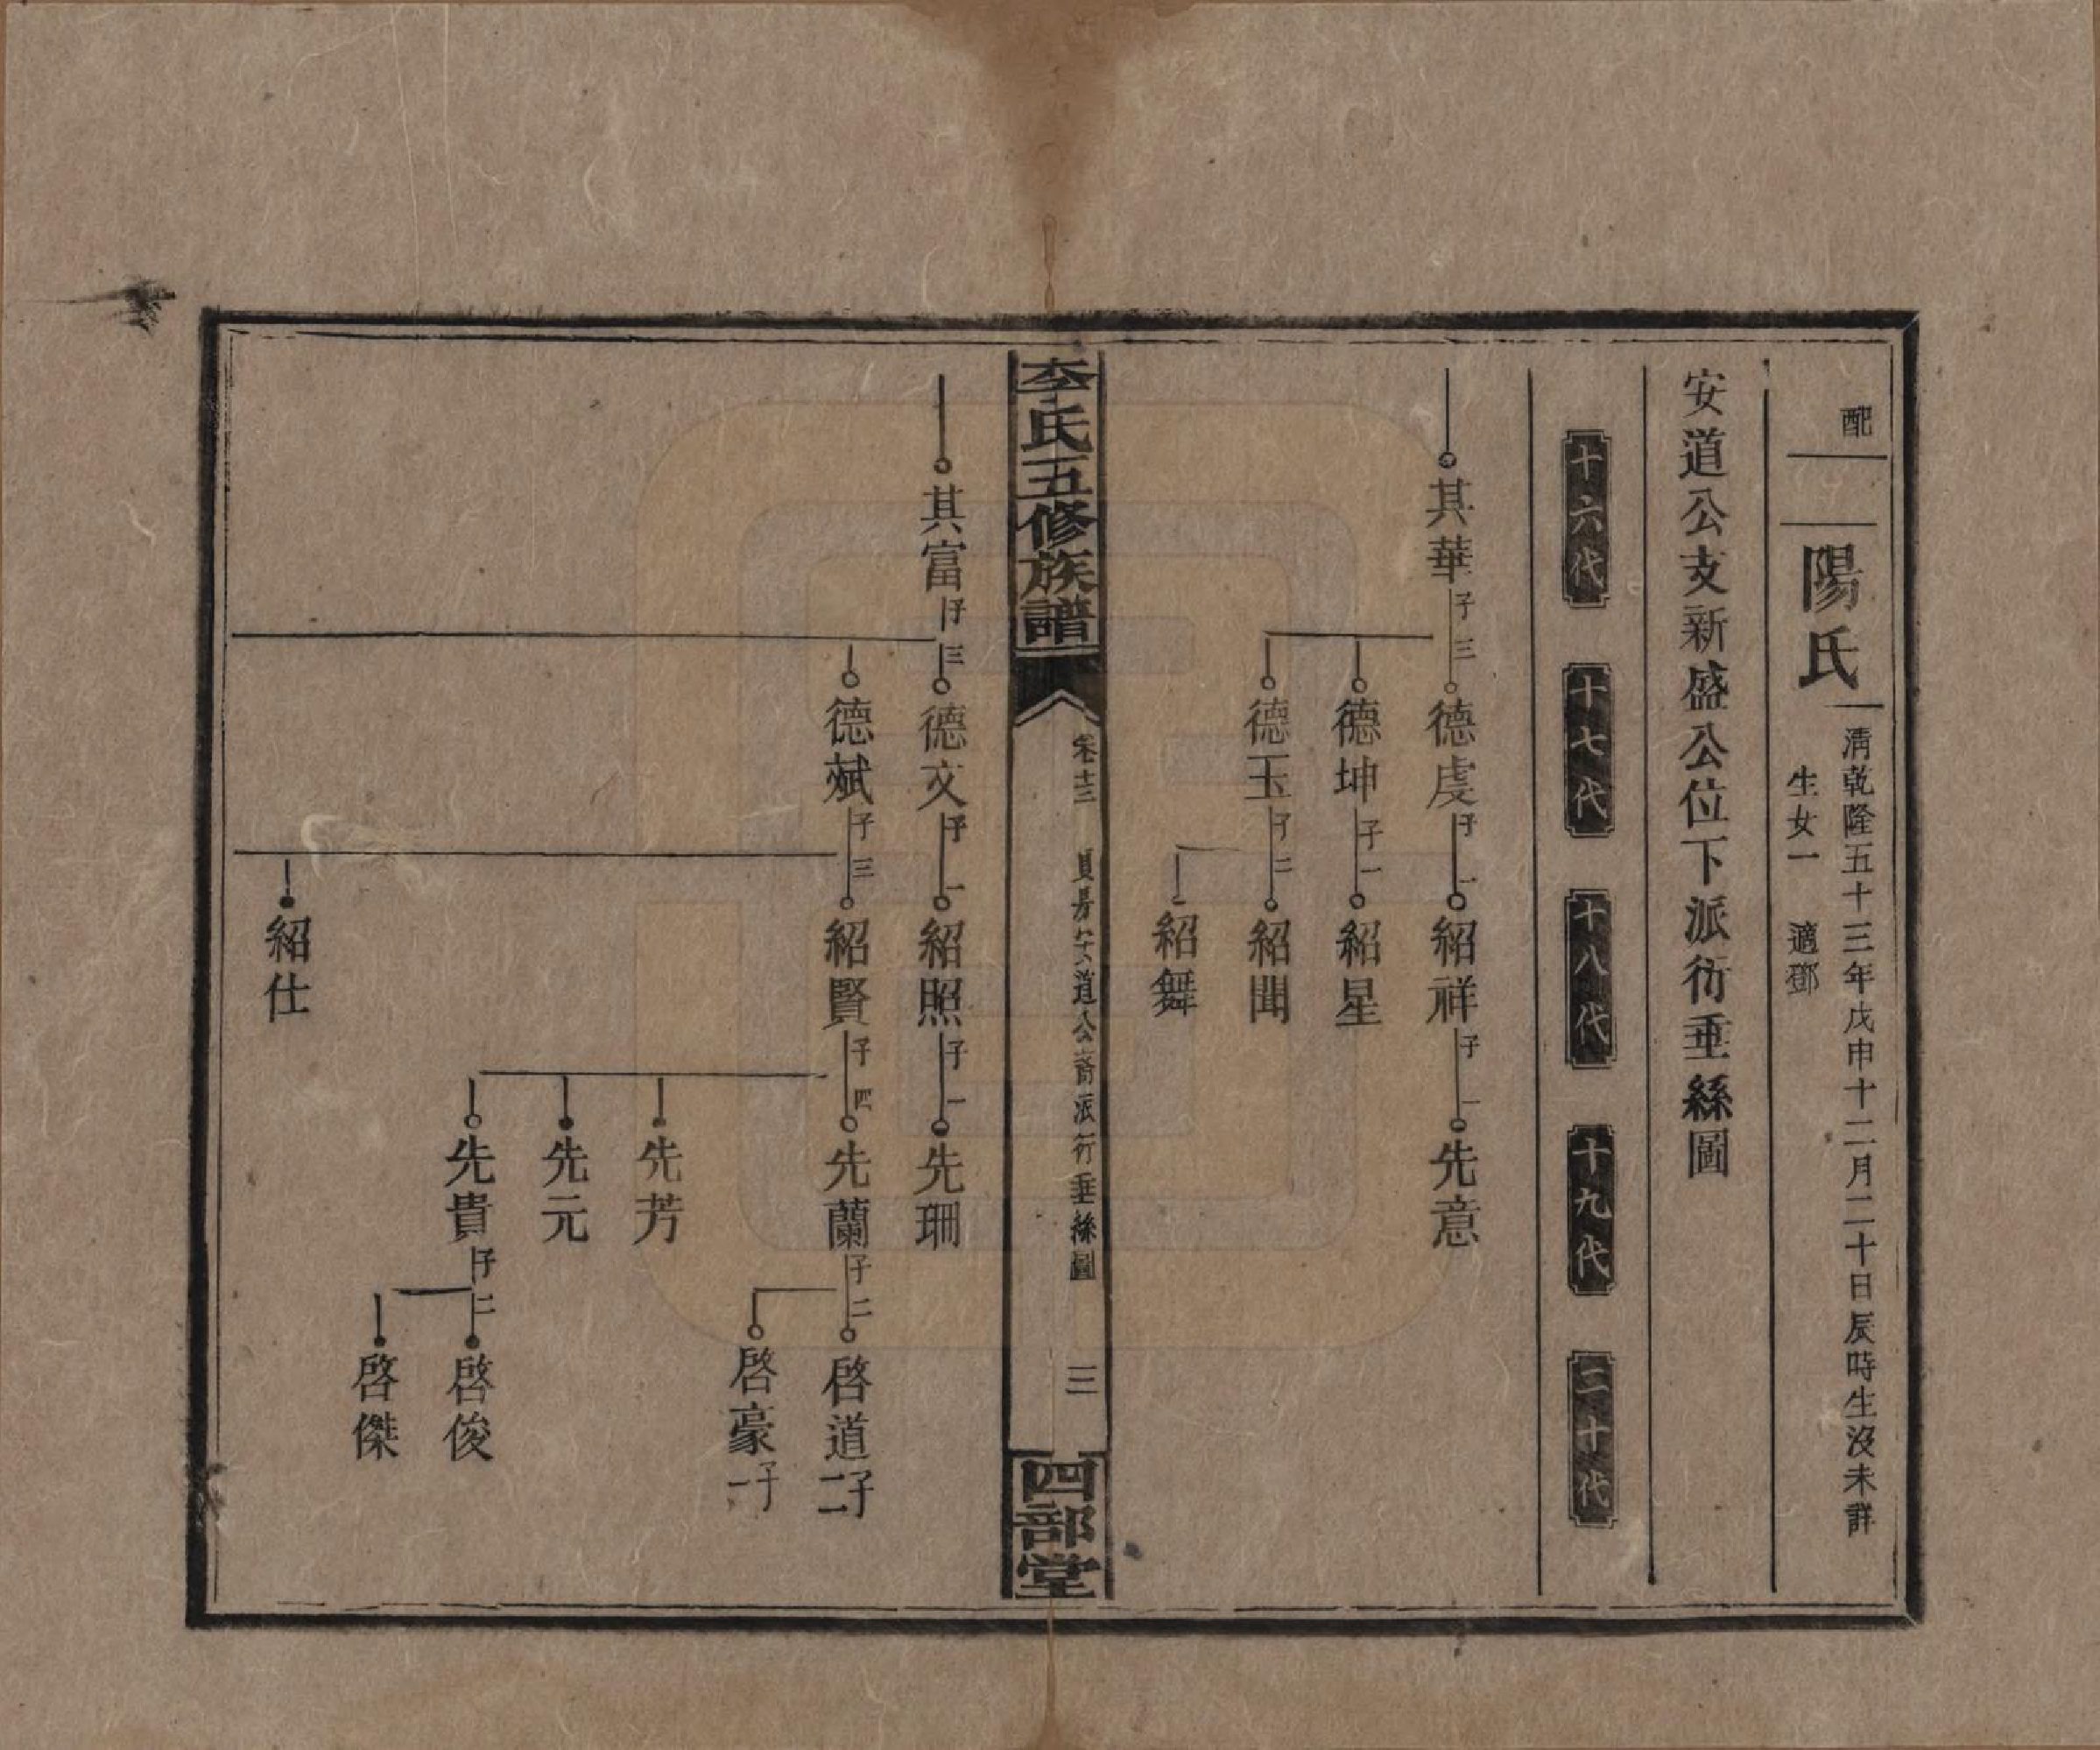 配
陽氏
清乾隆五十三年戊申十二月二十日辰時生沒未詳
生女一 適鄧
安道公支新盛公位下派衍垂絲圖
十六代 十七代 十八代 十九代 二十代
其華 子三 德虔 子一 紹祥 子一 先意
德坤 子一 紹星
德玉 子二 紹聞
紹舞
李氏五修族譜
卷十三 安道公裔派衍垂絲圖 三
四部堂
其富 子三 德文 子一 紹照 子一 先珊
德斌 子三 紹賢 子四 先蘭 子二 啓道 子二
啓豪 子一
先芳
先元
先貴 子二 啓俊
啓傑
紹仕